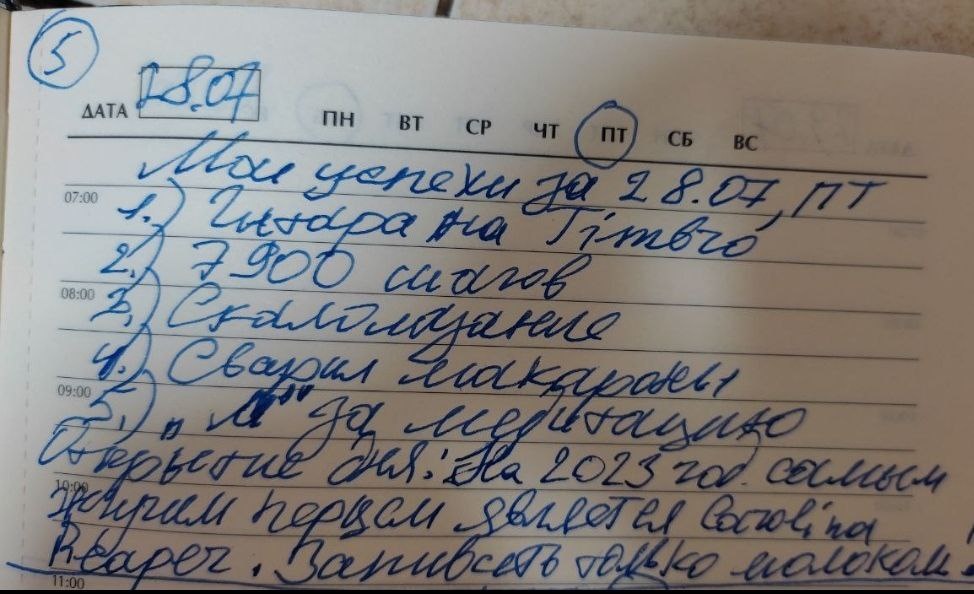 5
ДАТА 28.07 ПН ВТ СР ЧТ ПТ СБ ВС
Мои успехи за 28.07, ПТ
07:00
1.) Гитара на
2.) 7900 шагов
08:00
3.) Скалолазание
4.) Сварил макароны
09:00
5.) „М" за медитацию
Открытие дня: На 2023 год самым
10:00
жгучим перцем является Carolina
Reaper. Запивать только молоком!
11:00